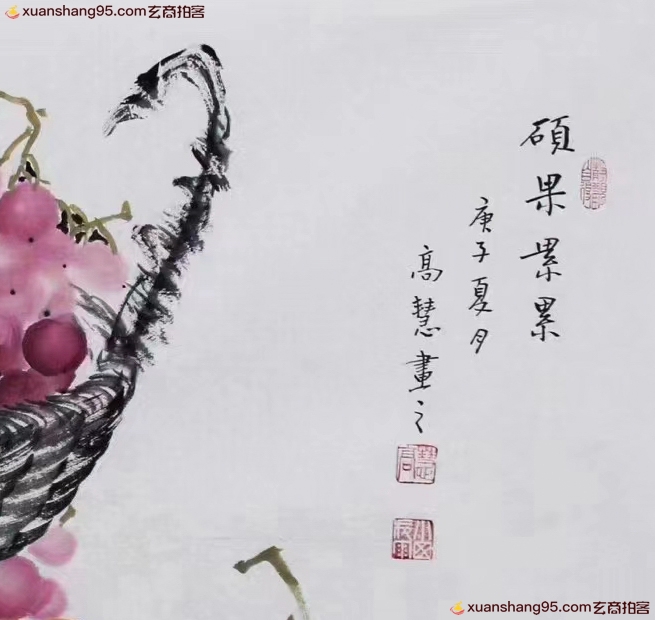 xuanshang95.com玄商拍客
硕果累累
庚子夏月
高慧畫之
xuanshang95.com玄商拍客